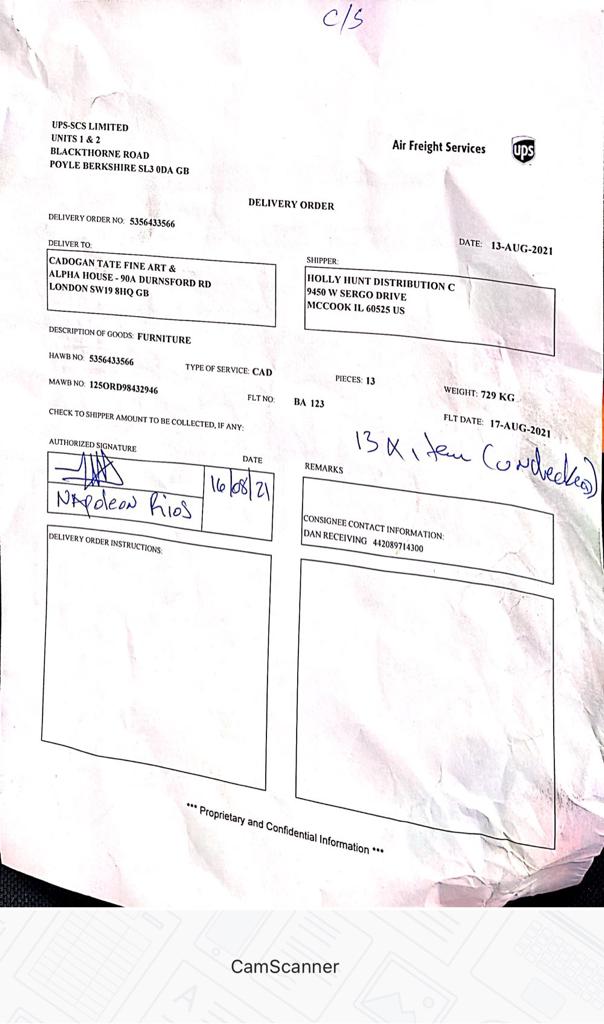 C/S
UPS-SCS LIMITED
UNITS 1 & 2
BLACKTHORNE ROAD
POYLE BERKSHIRE SL3 0DA GB
Air Freight Services
ups
DELIVERY ORDER
DELIVERY ORDER NO: 5356433566
DATE: 13-AUG-2021
DELIVER TO:
CADOGAN TATE FINE ART &
ALPHA HOUSE - 90A DURNSFORD RD
LONDON SW19 8HQ GB
SHIPPER:
HOLLY HUNT DISTRIBUTION C
9450 W SERGO DRIVE
MCCOOK IL 60525 US
DESCRIPTION OF GOODS: FURNITURE
HAWB NO: 5356433566
TYPE OF SERVICE: CAD
PIECES: 13
WEIGHT: 729 KG
MAWB NO: 125ORD98432946
FLT NO: BA 123
FLT DATE: 17-AUG-2021
CHECK TO SHIPPER AMOUNT TO BE COLLECTED, IF ANY:
13 X item (unchecked)
AUTHORIZED SIGNATURE
DATE
Napoleon Rios
16/08/21
REMARKS
CONSIGNEE CONTACT INFORMATION:
DAN RECEIVING 442089714300
DELIVERY ORDER INSTRUCTIONS:
*** Proprietary and Confidential Information ***
CamScanner